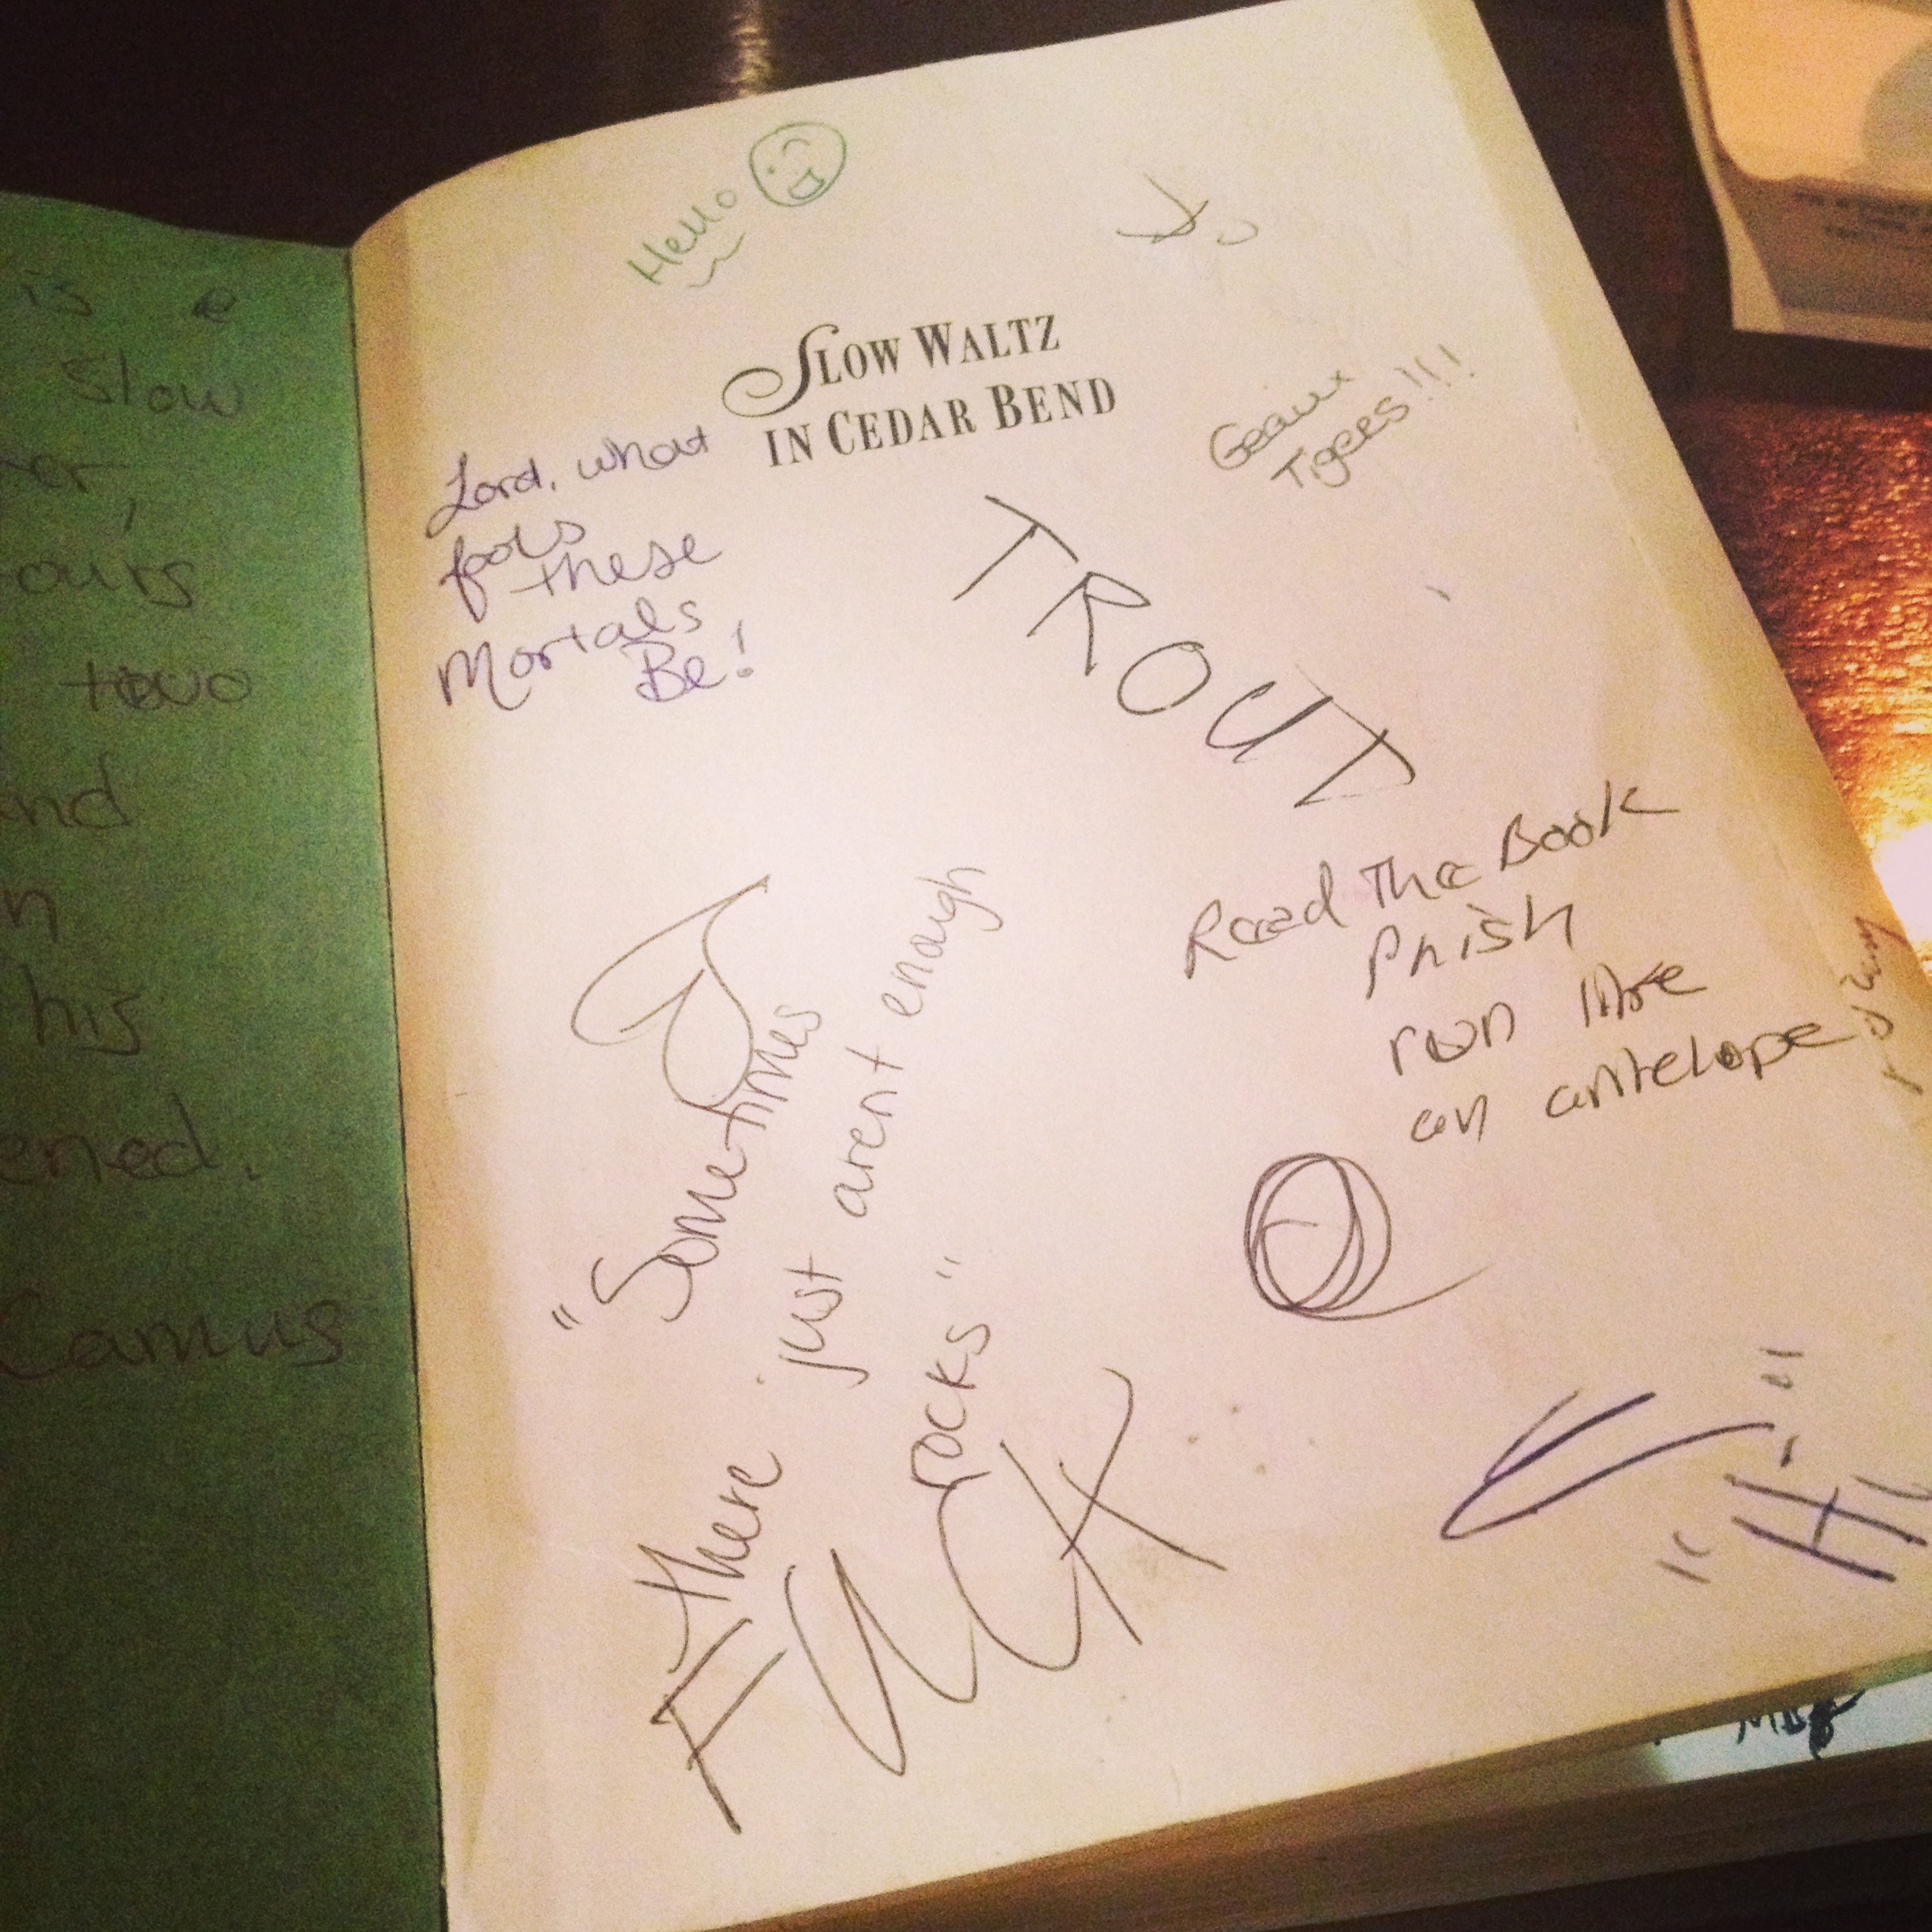 is a
slow
ours
two
his
Camus
Hello
SLOW WALTZ
IN CEDAR BEND
Geaux
Tigers!!!
Lord, what
fools
these
Mortals
Be!
TROUT
Read The Book
Phish
run like
an antelope
"Sometimes
There just arent enough
rocks"
FUCK